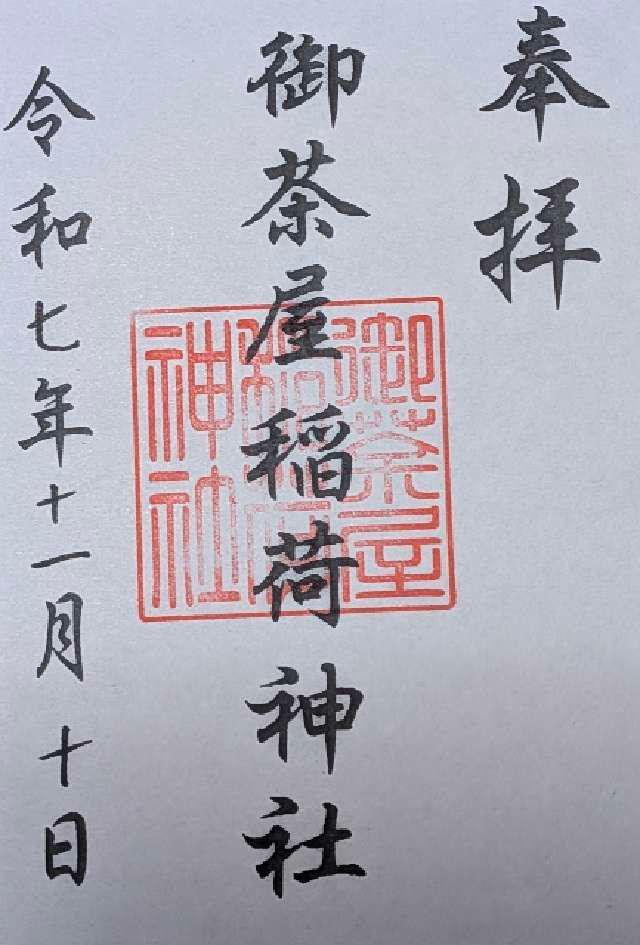 奉拝
御茶屋稲荷神社
御茶屋
稲荷
神社
令和七年十一月十日